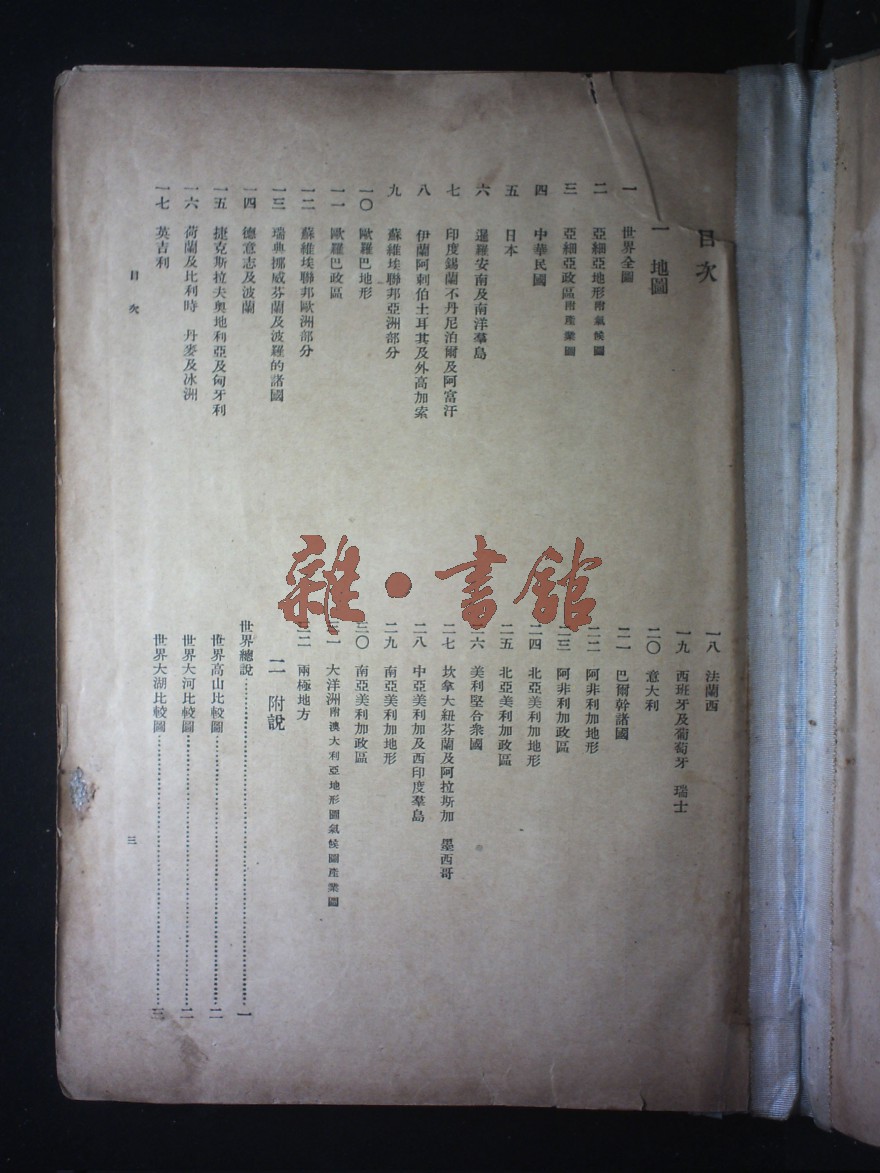 目次
一 地圖
一 世界全圖
二 亞細亞地形附氣候圖
三 亞細亞政區附產業圖
四 中華民國
五 日本
六 暹羅安南及南洋羣島
七 印度錫蘭不丹尼泊爾及阿富汗
八 伊蘭阿剌伯土耳其及外高加索
九 蘇維埃聯邦亞洲部分
一〇 歐羅巴地形
一一 歐羅巴政區
一二 蘇維埃聯邦歐洲部分
一三 瑞典挪威芬蘭及波羅的諸國
一四 德意志及波蘭
一五 捷克斯拉夫奧地利亞及匈牙利
一六 荷蘭及比利時 丹麥及冰洲
一七 英吉利
一八 法蘭西
一九 西班牙及葡萄牙 瑞士
二〇 意大利
二一 巴爾幹諸國
二二 阿非利加地形
二三 阿非利加政區
二四 北亞美利加地形
二五 北亞美利加政區
二六 美利堅合衆國
二七 坎拿大紐芬蘭及阿拉斯加 墨西哥
二八 中亞美利加及西印度羣島
二九 南亞美利加地形
三〇 南亞美利加政區
三一 大洋洲附澳大利亞地形圖氣候圖產業圖
三二 兩極地方
二 附說
世界總說……一
世界高山比較圖……二
世界大河比較圖……二
世界大湖比較圖……三
目次
三
雜·書館